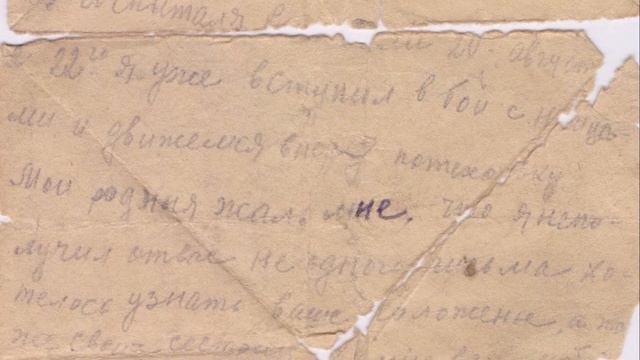 20 август
22го я уже вступил в бой с немца-
ми и движемся вперед потихоньку
Мои родния жал. мне. что я непо-
лучил ответ не одного письма хо-
телось узнать ваше положенье, а
же свои